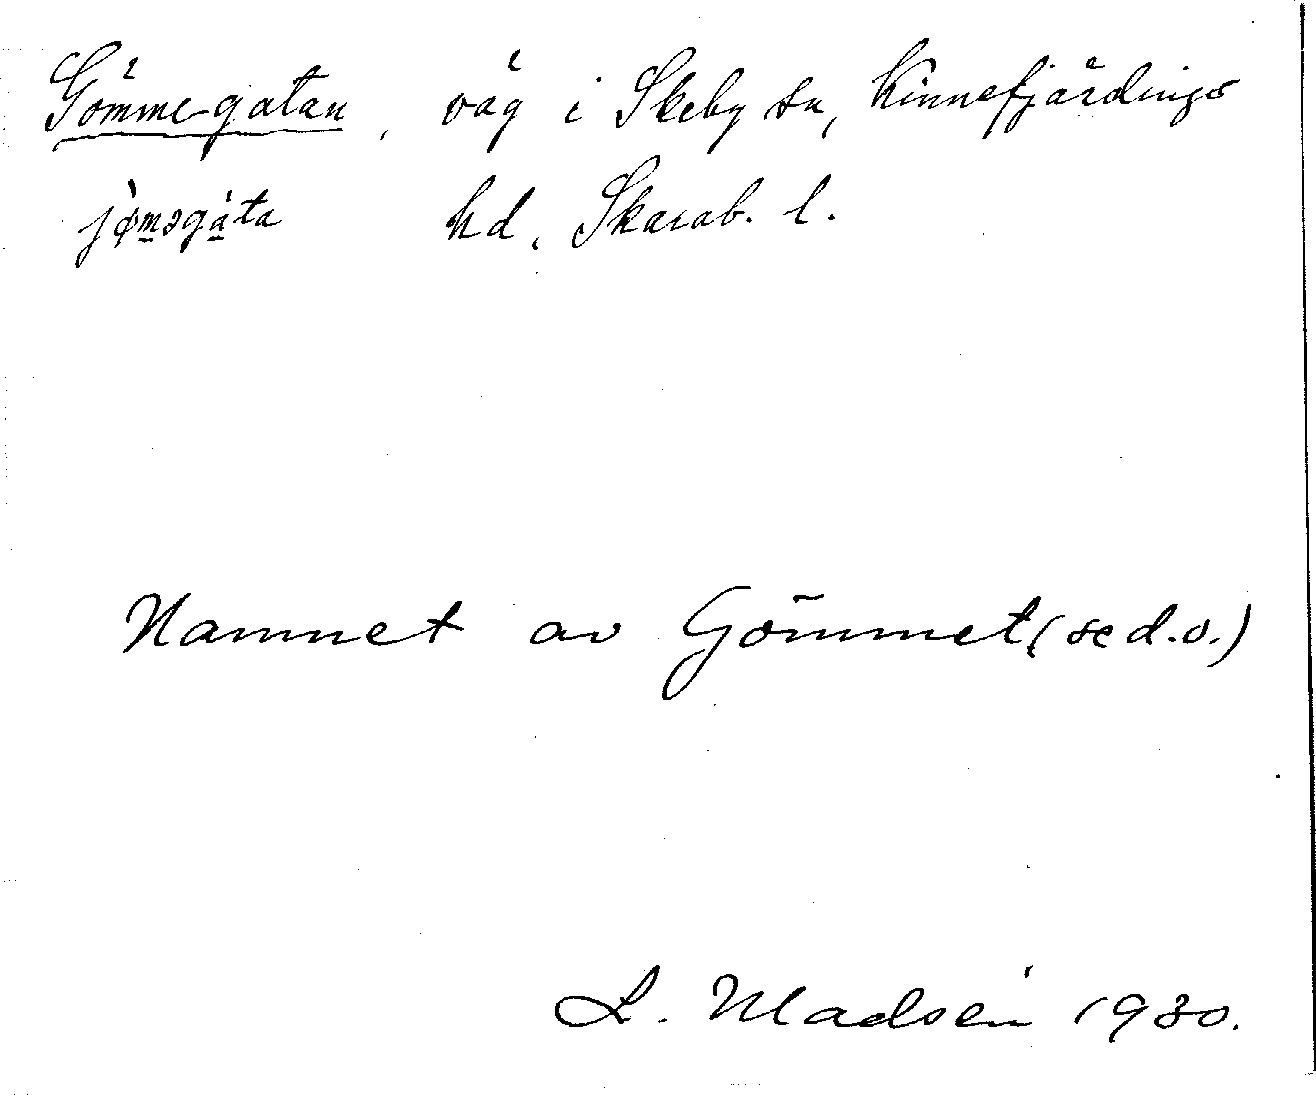 Gömme-gatan, väg i Skeby sn, Kinnefjärdings
jø̀məgáta hd, Skarab. l.
Namnet av Gömmet (se d.o.)
L. Madsén 1930.